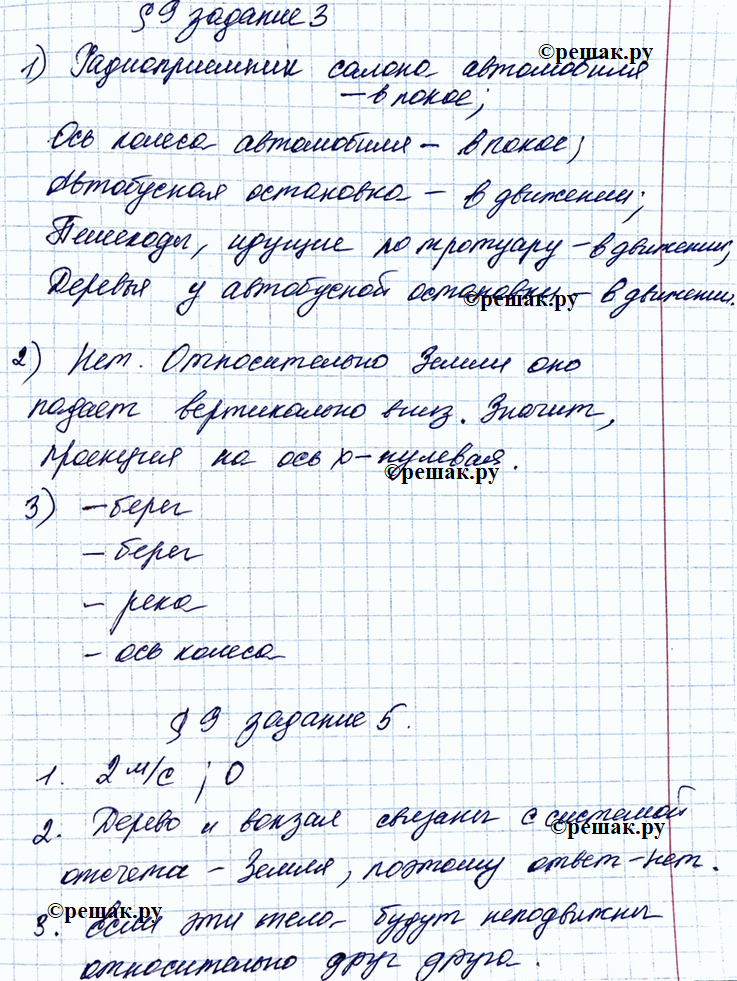 § 9 задание 3
©решак.ру
1) Радиоприемник салона автомобиля
— в покое;
Ось колеса автомобиля — в покое;
Автобусная остановка — в движении;
Пешеходы, идущие по тротуару — в движении;
Деревья у автобусной остановки — в движении.
©решак.ру
2) Нет. Относительно Земли оно
падает вертикально вниз. Значит,
проекция на ось х — нулевая.
©решак.ру
3) — берег
— берег
— река
— ось колеса
§ 9 задание 5.
1. 2 м/с ; 0
2. Дерево и вокзал связаны с системой
©решак.ру
отсчета — Земля, поэтому ответ — нет.
©решак.ру
3. Если эти тела будут неподвижны
относительно друг друга.